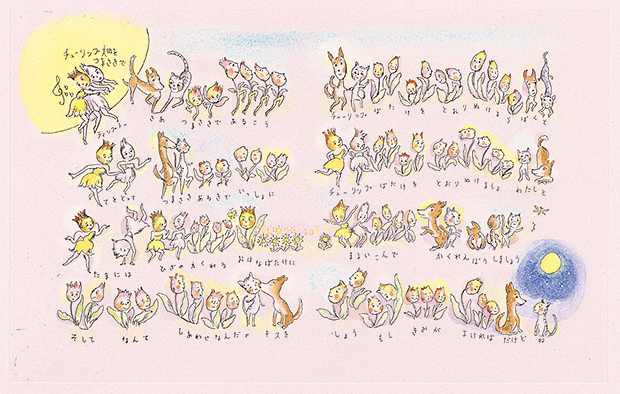 チューリップ畑を
つまさきで
さあ つまさきで あるこう
チューリップ ばたけを とおりぬけよう ぼくと
てをとって つまさきあるきで いっしょに
チューリップ ばたけを とおりぬけましょ わたしと
たまには ひざのかくれる おはなばたけに
まよいこんで かくれんぼうしましょう
そして なんて しあわせなんだ キスを
しよう もし きみが よければ だけど ね